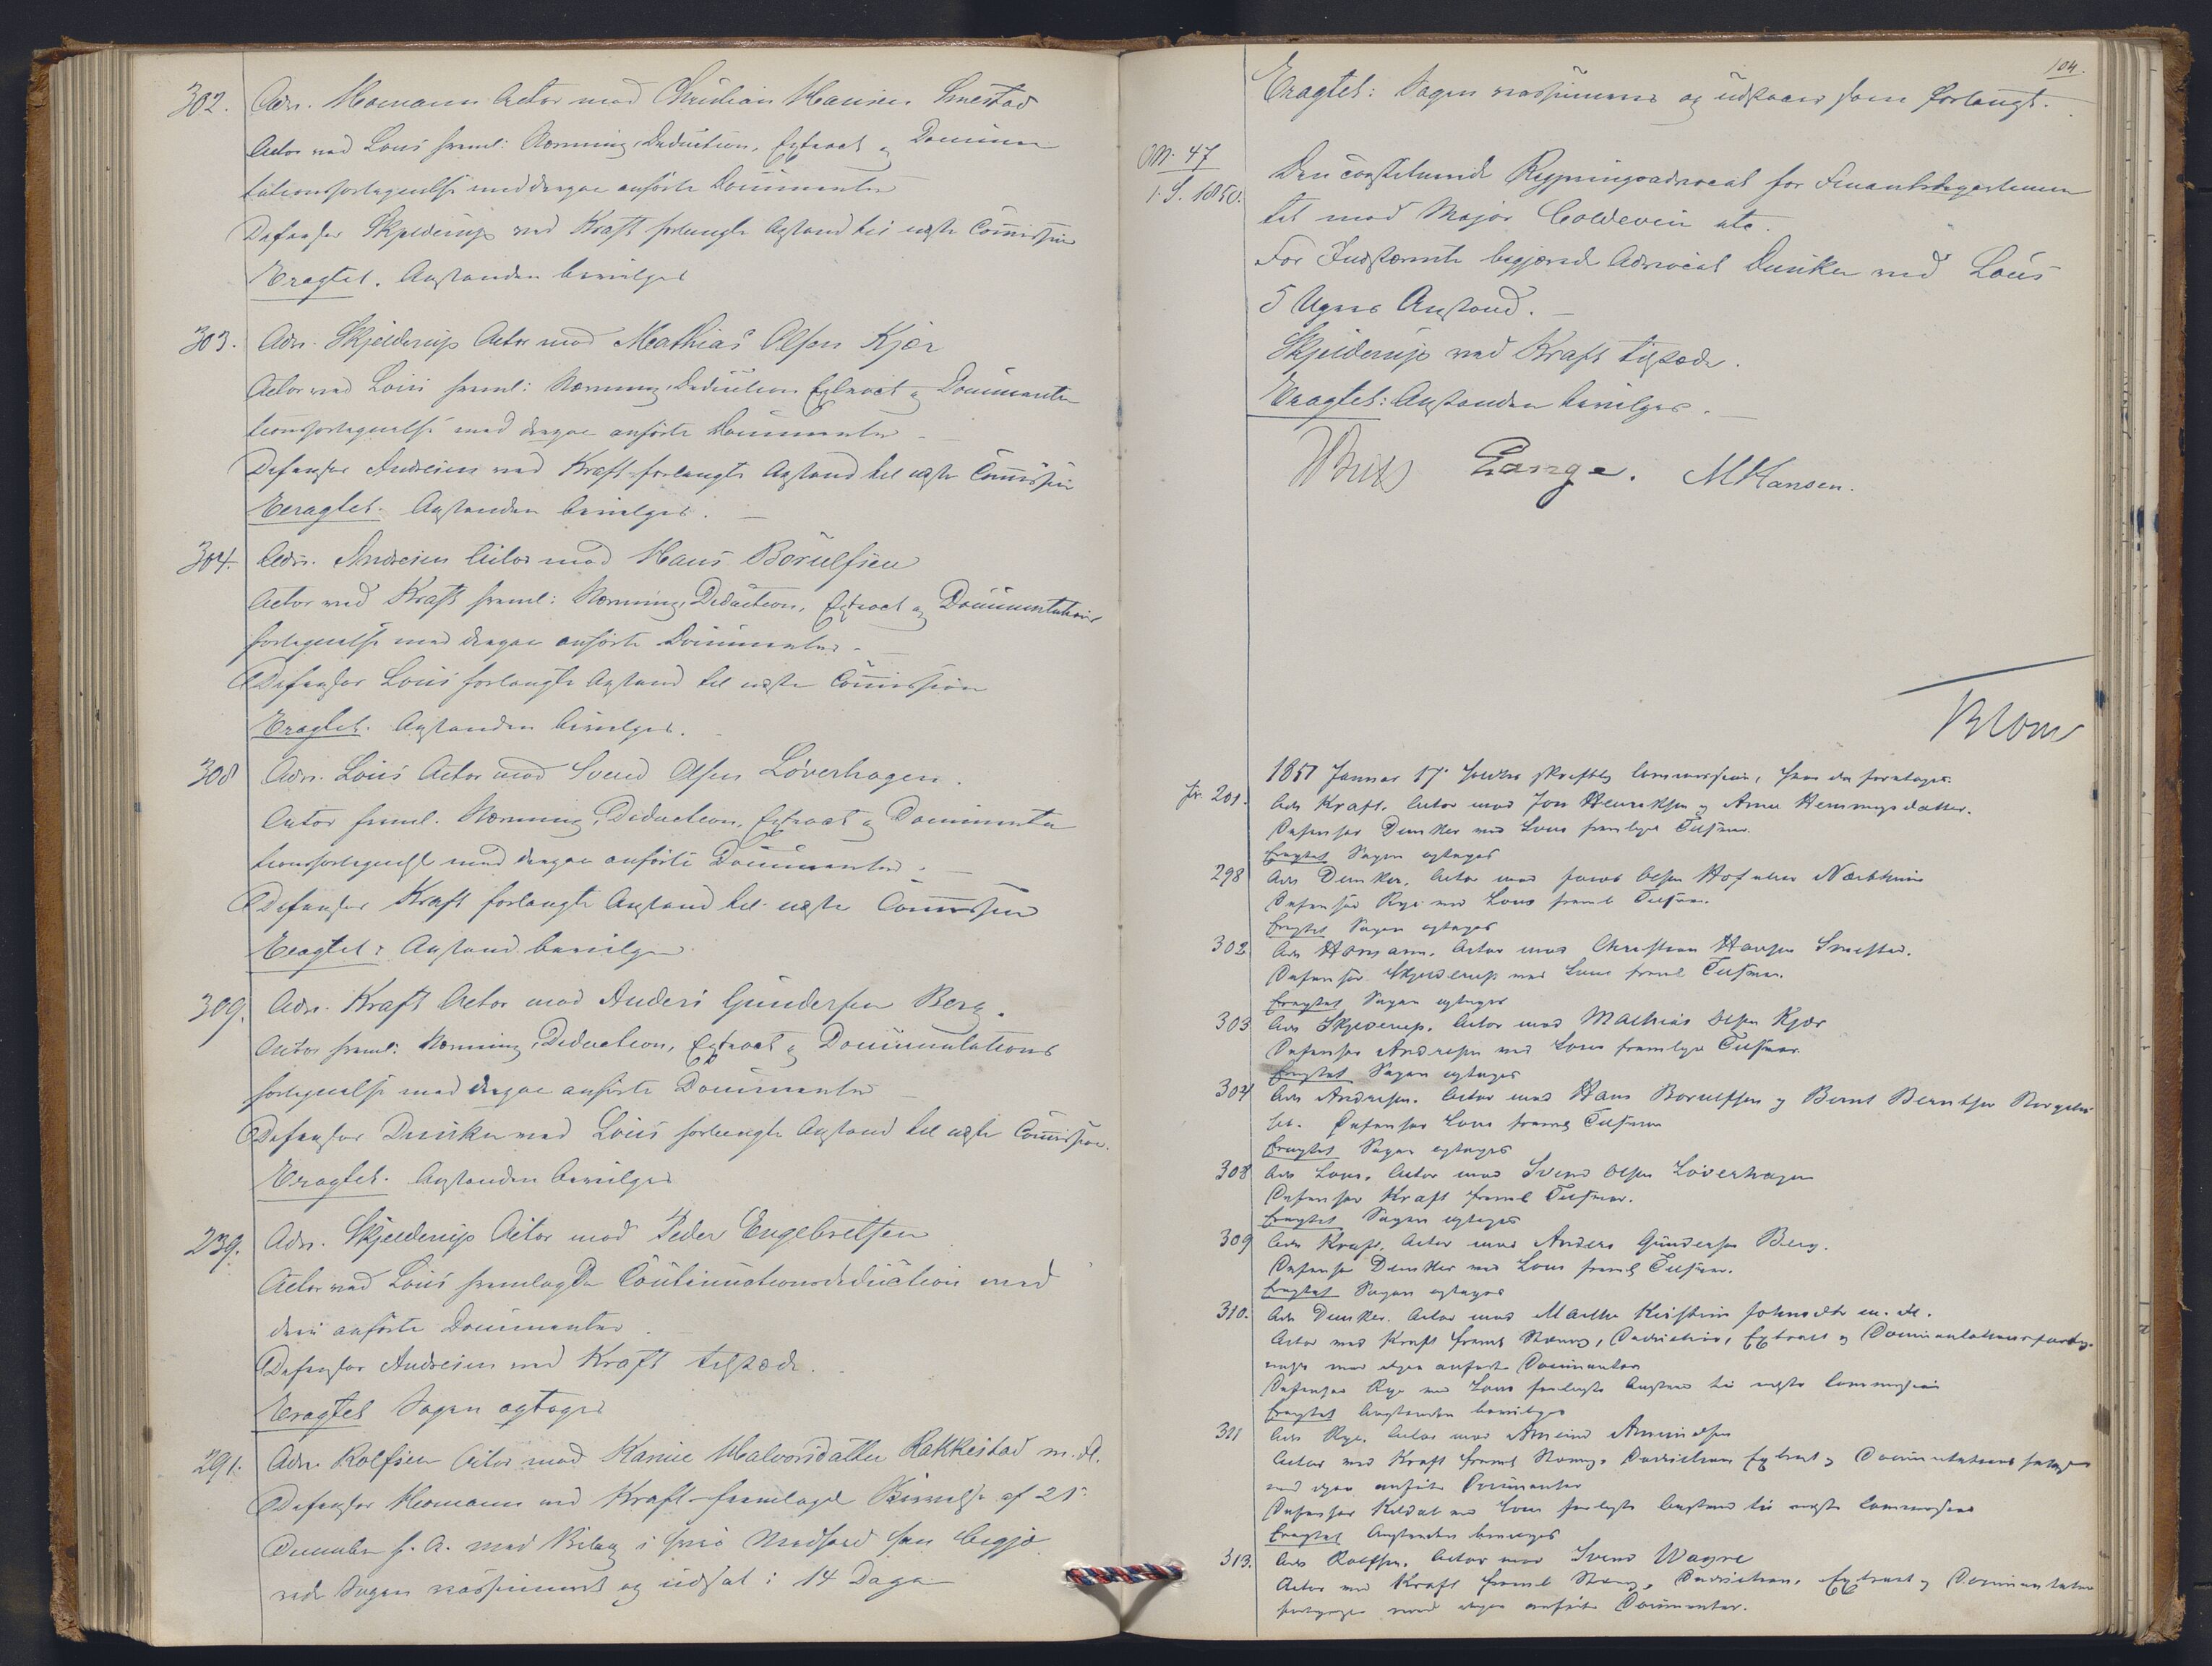 302. Adv. Homann Actor mod Christian Hansen Smestad
Actor ved Lous freml: Stævning, Deduction, Extract og Documen
tationsfortegnelse med deri anførte Documenter
Defensor Skjelderup ved Kraft forlangte Anstand til næste Commission
Eragtet. Anstanden bevilges
303. Adv. Skjelderup Actor mod Mathias Olsen Kjær
Actor ved Lous freml: Stævning, Deduction Extract og Documenta
tionsfortegnelse med anførte Documenter
Defensor Andresen ved Kraft forlangte Anstand til næste Commission
Eeragtet. Anstanden bevilges.
304. Adv. Andresen Actor mod Hans Borulfsen
Actor ved Kraft freml: Stævning, Deduction, Extract og Documentations
fortegnelse med anførte Documenter
Defensor Lous forlangte Anstand til næste Commission
Eragtet. Anstanden bevilges.
308 Adv. Lous Actor mod Svend Olsen Löverhagen.
Actor freml. Stævning, Deduction, Extract og Documenta
tionsfortegnelse med anførte Documenter.
Defensor Kraft forlangte Anstand til næste Commission
Eragtet: Anstand bevilges
309. Adv. Kraft Actor mod Anders Gundersen Berg.
Actor freml: Stævning, Deduction, Extract og Documentations
fortegnelse med anførte Documenter
Defensor Dunker ved Lous forlangte Anstand til næste Commission.
Eragtet. Anstanden bevilges
239. Adv. Skjelderup Actor mod Peder Engebretsen
Actor ved Lous fremlagde Continuationsdeduction med
deri anførte Documenter.
Defensor Andresen ved Kraft tilstæde.
Eragtet Sagen optages
291. Adv. Rolfsen Actor mod Karine Halvorsdatter Rakkestad m. fl.
Defensor Homann ved Kraft fremlagde Skrivelse af 21de
December f. A. med Bilag i hvis Medfør han begjæ
rede Sagen reassumeret og udsat i 14 Dage
104.
Eragtet: Sagen reassumeres og udsættes som forlangt.
O.N. 47
1. S. 1850.
Den constituerede Regjeringsadvocat for Finantsdepartemen
tet mod Major Coldevin etc.
For Indstævnte begjærede Advocat Dunker ved Lous
5 Ugers Anstand.
Skjelderup ved Kraft tilstæde.
Eragtet: Anstanden bevilges.
Lange. M Hansen.
Blom
1851 Januar 17. holdtes skriftlig Commission, hvor da foretoges.
201. Adv Kraft. Actor mod Jon Henriksen og Anne Hemmingsdatter.
Defensor Dunker ved Lous fremlagde Tilsvar.
Eragtet Sagen optages
298 Adv Dunker. Actor mod Jacob Olsen Hof
Defensor Rye ved Lous freml Tilsvar.
Eragtet Sagen optages
302 Adv Homann. Actor mod Christian Hansen Smestad.
Defensor Skjelderup ved Lous freml Tilsvar.
Eragtet Sagen optages
303 Adv Skjelderup. Actor mod Mathias Olsen Kjær
Defensor Andresen ved Lous fremlagde Tilsvar.
Eragtet Sagen optages
304 Adv Andresen. Actor mod Hans Borulfsen og Bernt Berntsen
Defensor Lous freml Tilsvar
Eragtet Sagen optages
308 Adv Lous. Actor mod Svend Olsen Löverhagen
Defensor Kraft freml Tilsvar.
Eragtet Sagen optages
309 Adv Kraft. Actor mod Anders Gundersen Berg.
Defensor Dunker ved Lous freml Tilsvar.
Eragtet Sagen optages
310. Adv Dunker. Actor mod Marthe Kirstine Johnsdtr m. fl.
Actor ved Kraft freml Stævng, Deduction, Extract og Documentationsforteg-
nelse med anførte Documenter
Defensor Rye ved Lous forlangte Anstand til næste Commission
Eragtet Anstanden bevilges
311 Adv Rye. Actor mod Amund Amundsen
Actor ved Kraft freml Stævng, Deduction Extract og Documentations
med anførte Documenter
Defensor Kildal ved Lous forlangte Anstand til næste Commission
Eragtet Anstanden bevilges
313. Adv Rolfsen. Actor mod Svend Wagne
Actor ved Kraft freml Stævng, Deduction, Extract og Documentations
fortegnelse med anførte Documenter.